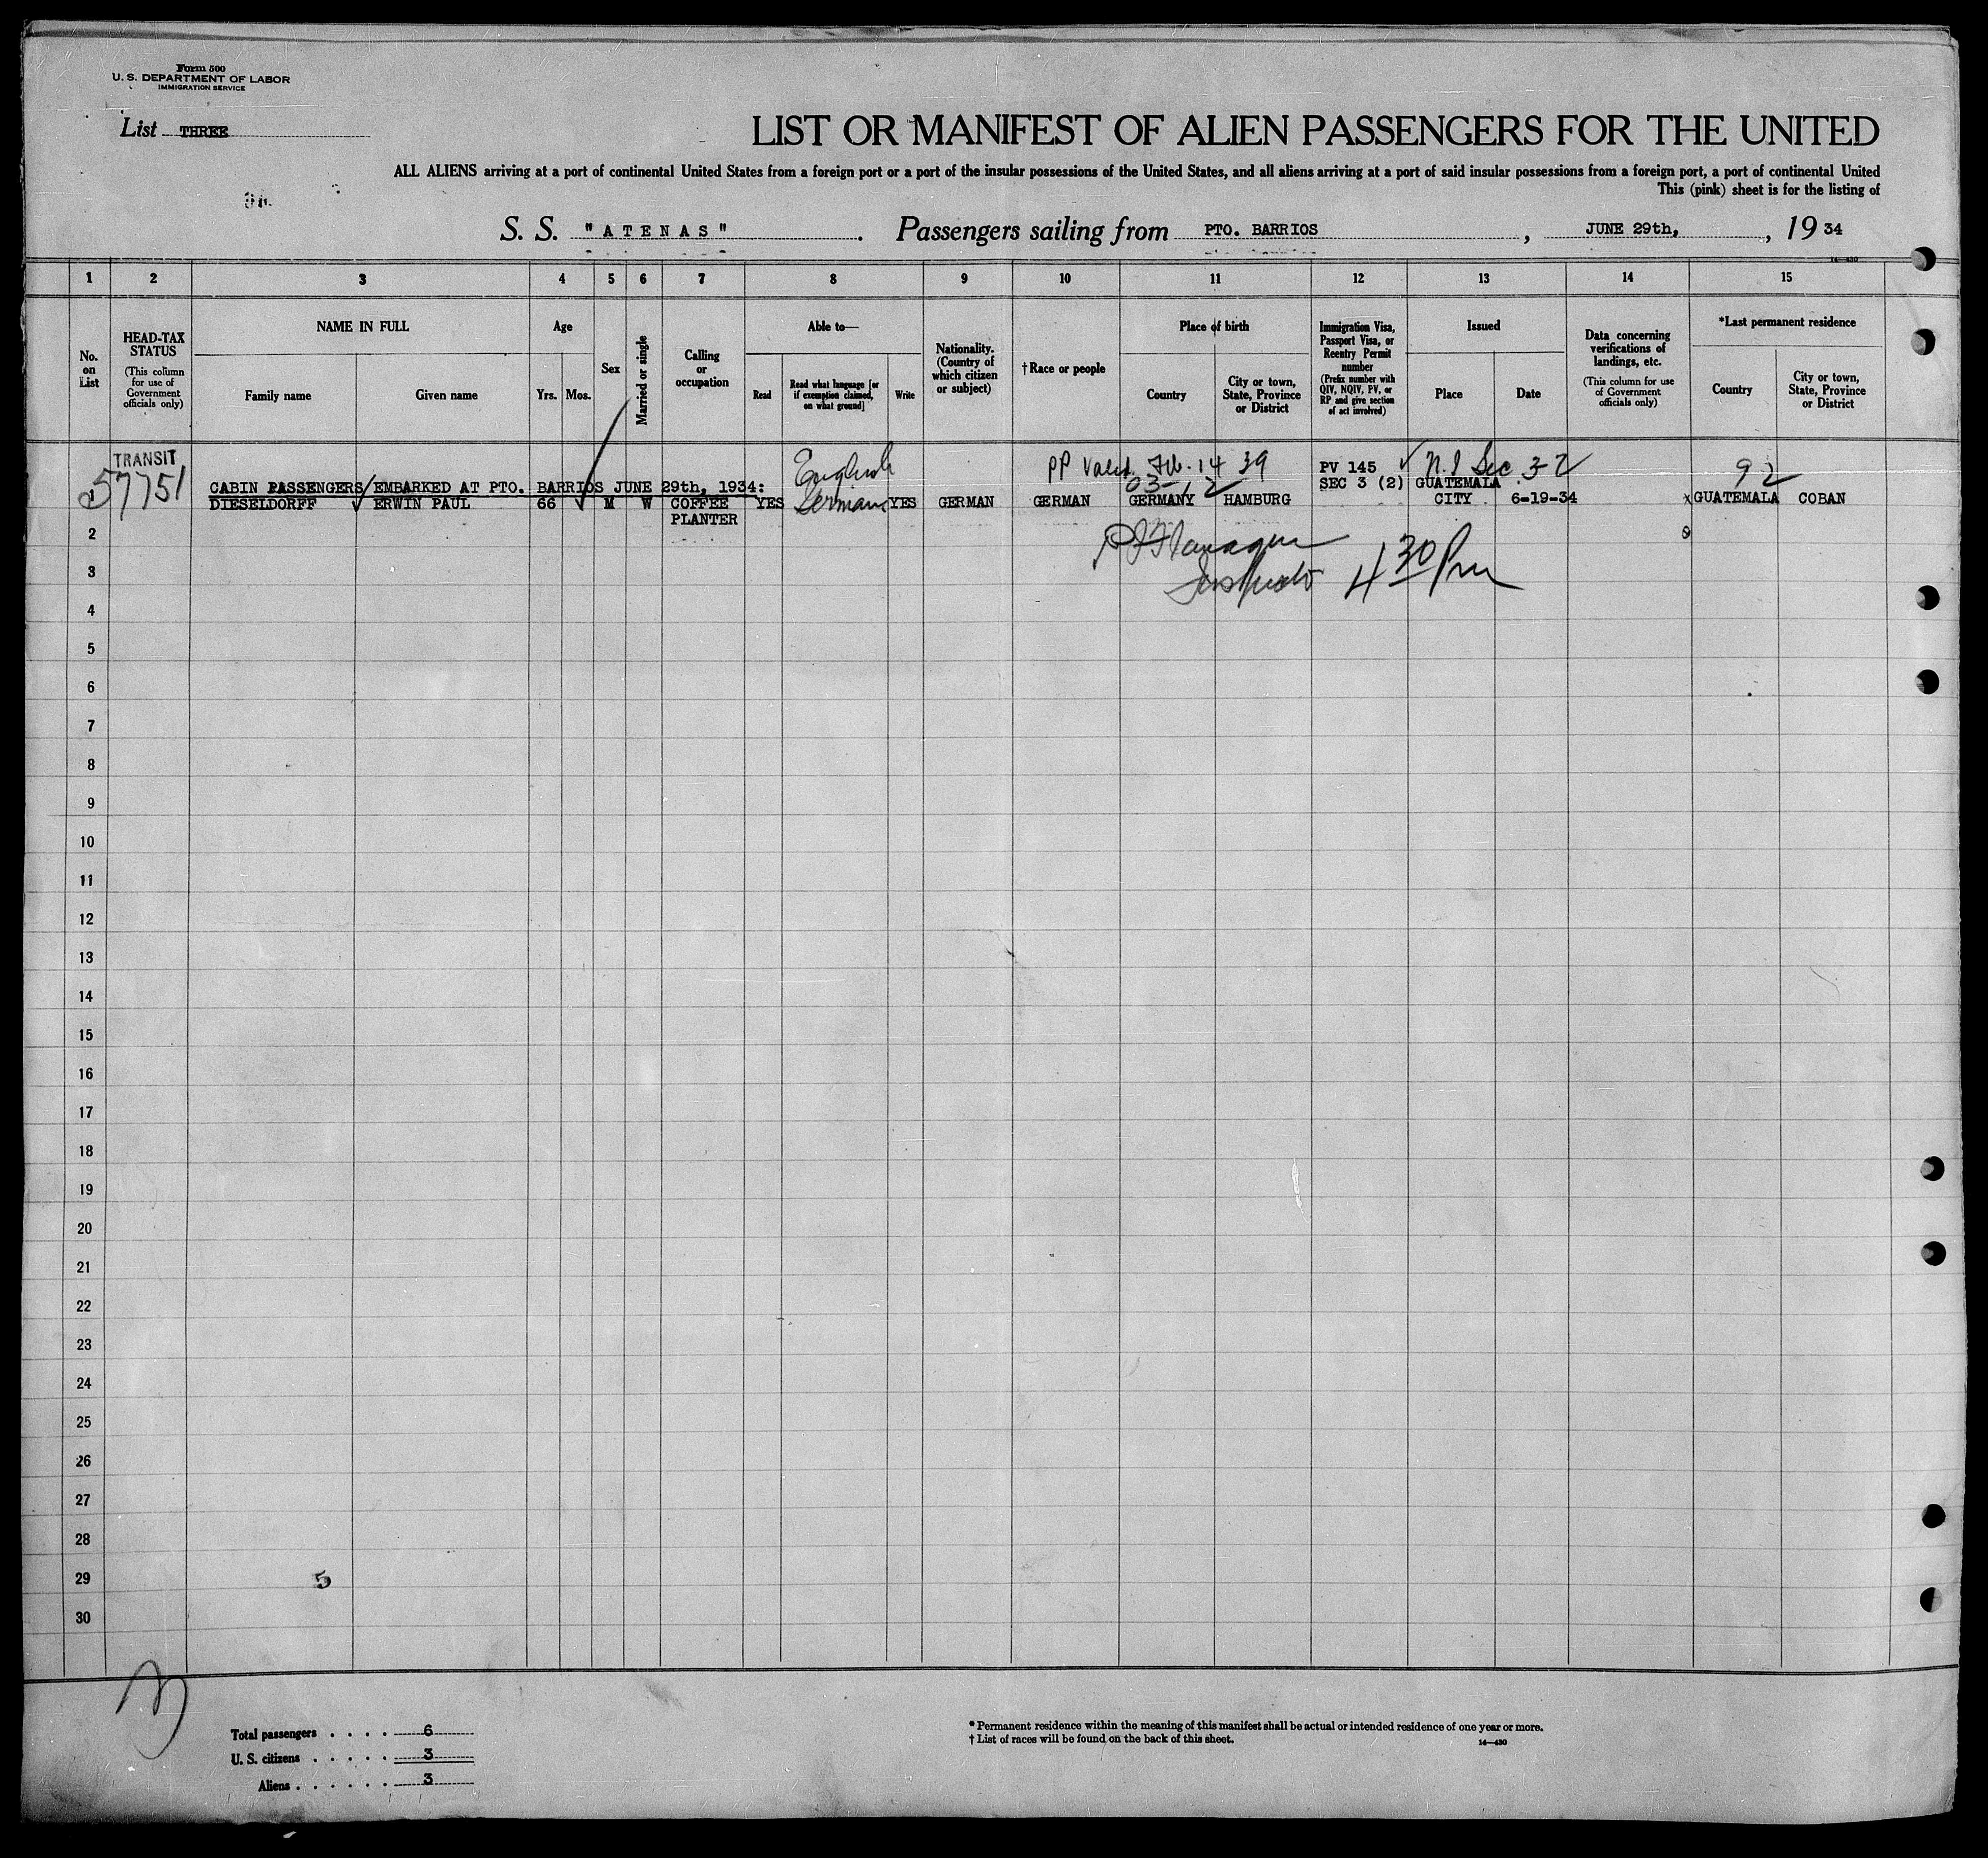 Form 500
U. S. DEPARTMENT OF LABOR
IMMIGRATION SERVICE
List THREE
LIST OR MANIFEST OF ALIEN PASSENGERS FOR THE UNITED
ALL ALIENS arriving at a port of continental United States from a foreign port or a port of the insular possessions of the United States, and all aliens arriving at a port of said insular possessions from a foreign port, a port of continental United
This (pink) sheet is for the listing of
S. S. "ATENAS". Passengers sailing from PTO. BARRIOS, JUNE 29th, , 19 34
14—430
1 2 3 4 5 6 7 8 9 10 11 12 13 14 15
No. on List
HEAD-TAX STATUS
(This column for use of Government officials only)
NAME IN FULL
Family name
Given name
Age
Yrs. Mos.
Sex
Married or single
Calling or occupation
Able to—
Read
Read what language [or if exemption claimed, on what ground]
Write
Nationality. (Country of which citizen or subject)
†Race or people
Place of birth
Country
City or town, State, Province or District
Immigration Visa, Passport Visa, or Reentry Permit number
(Prefix number with QIV, NQIV, PV, or RP and give section of act involved)
Issued
Place
Date
Data concerning verifications of landings, etc.
(This column for use of Government officials only)
*Last permanent residence
Country
City or town, State, Province or District
TRANSIT
57751
English
PP Valid Feb. 14 39
PV 145
N.I Sec. 3-2
92
CABIN PASSENGERS EMBARKED AT PTO. BARRIOS JUNE 29th, 1934:
03-12
SEC 3 (2) GUATEMALA
DIESELDORFF ERWIN PAUL 66 M W COFFEE YES German YES GERMAN GERMAN GERMANY HAMBURG CITY 6-19-34 x GUATEMALA COBAN
PLANTER
2
3
Inspector 4 30 Pm
4
5
6
7
8
9
10
11
12
13
14
15
16
17
18
19
20
21
22
23
24
25
26
27
28
29 5
30
Total passengers . . . . 6
U. S. citizens . . . . . 3
Aliens . . . . . . 3
* Permanent residence within the meaning of this manifest shall be actual or intended residence of one year or more.
† List of races will be found on the back of this sheet.
14—430